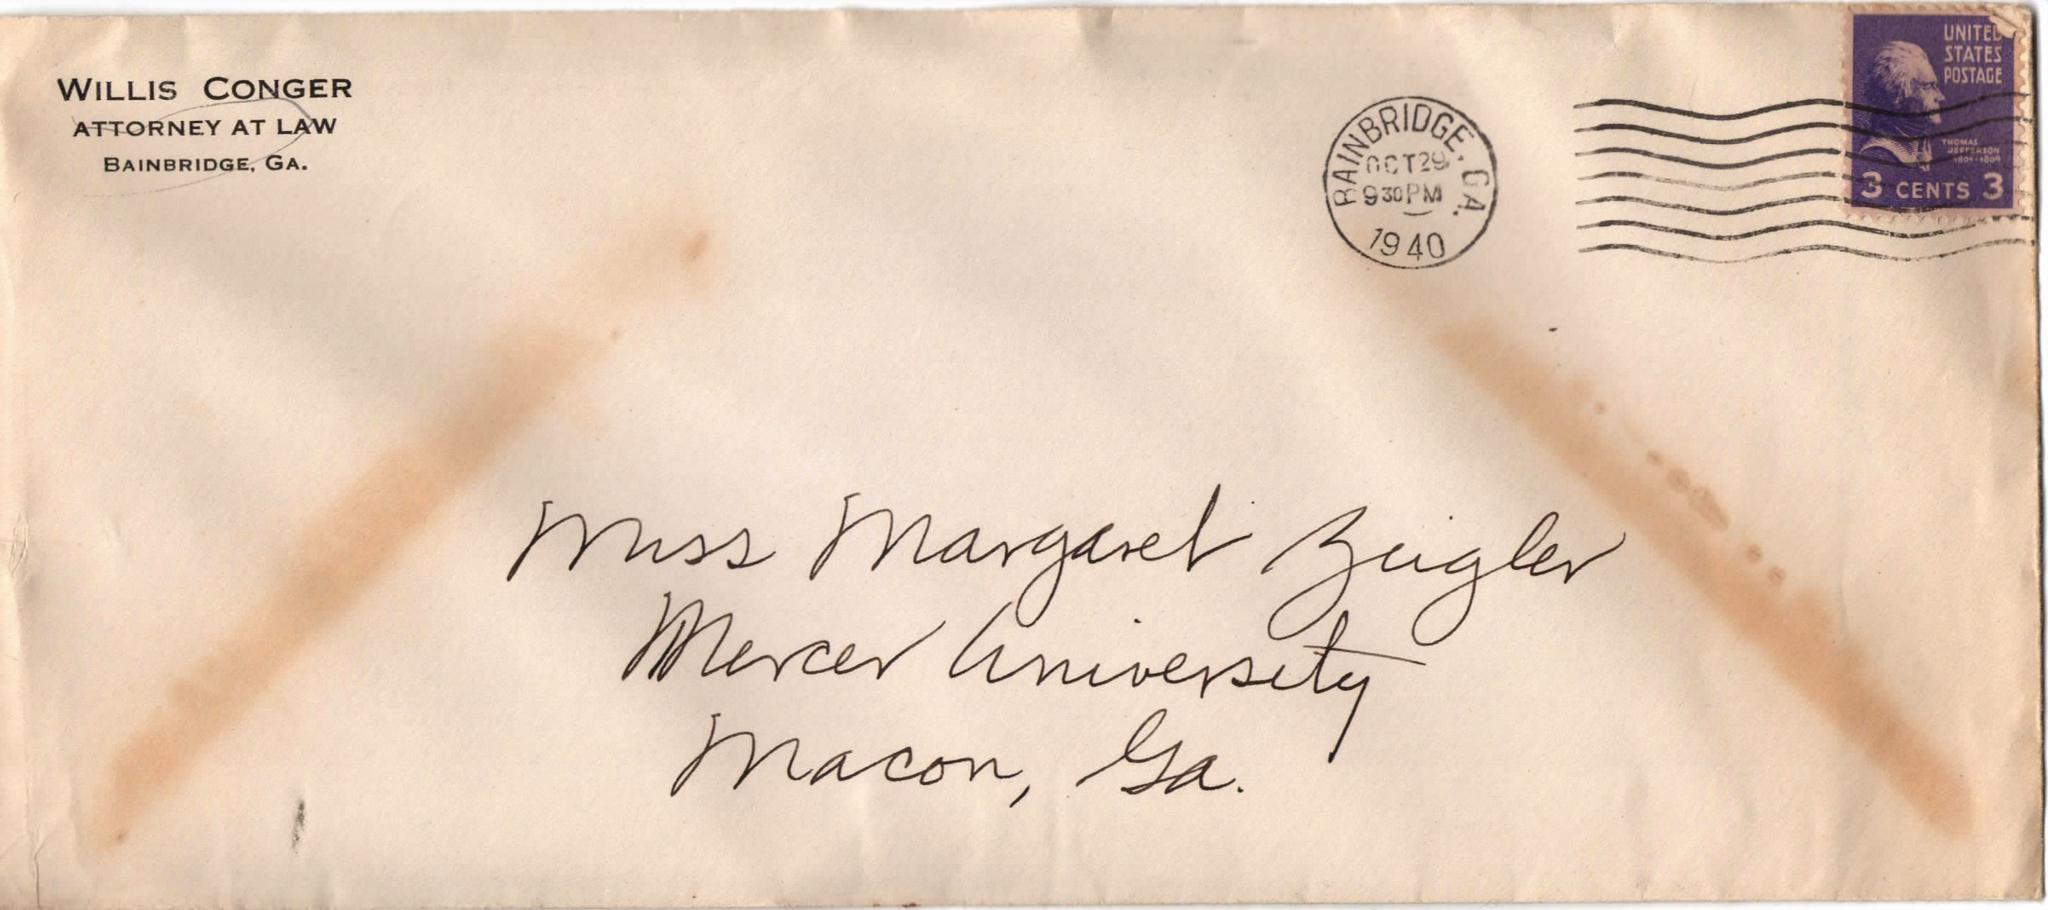 WILLIS CONGER
ATTORNEY AT LAW
BAINBRIDGE, GA.
BAINBRIDGE, GA.
OCT 29
9 30 PM
1940
UNITED
STATES
POSTAGE
THOMAS
JEFFERSON
1801-1809
3 CENTS 3
Miss Margaret Zeigler
Mercer University
Macon, Ga.